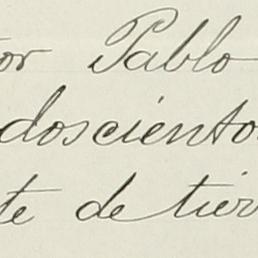 or Pablo
dosciento
te de tier